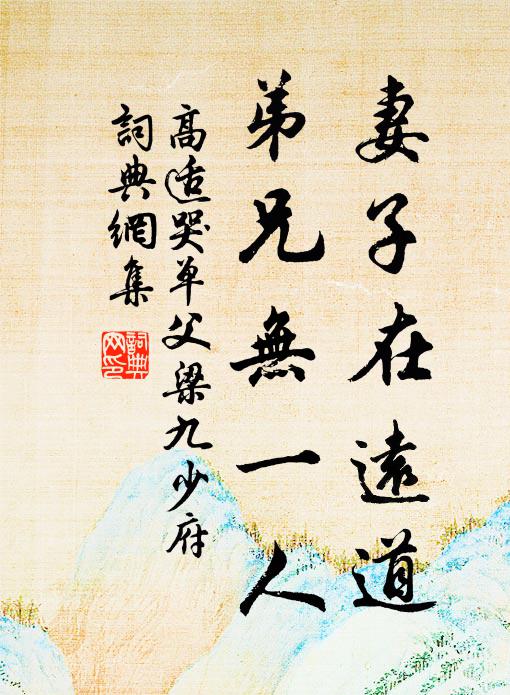 妻子在遠道
弟兄無一人
高适哭单父梁九少府
詞典網集
詞典網印